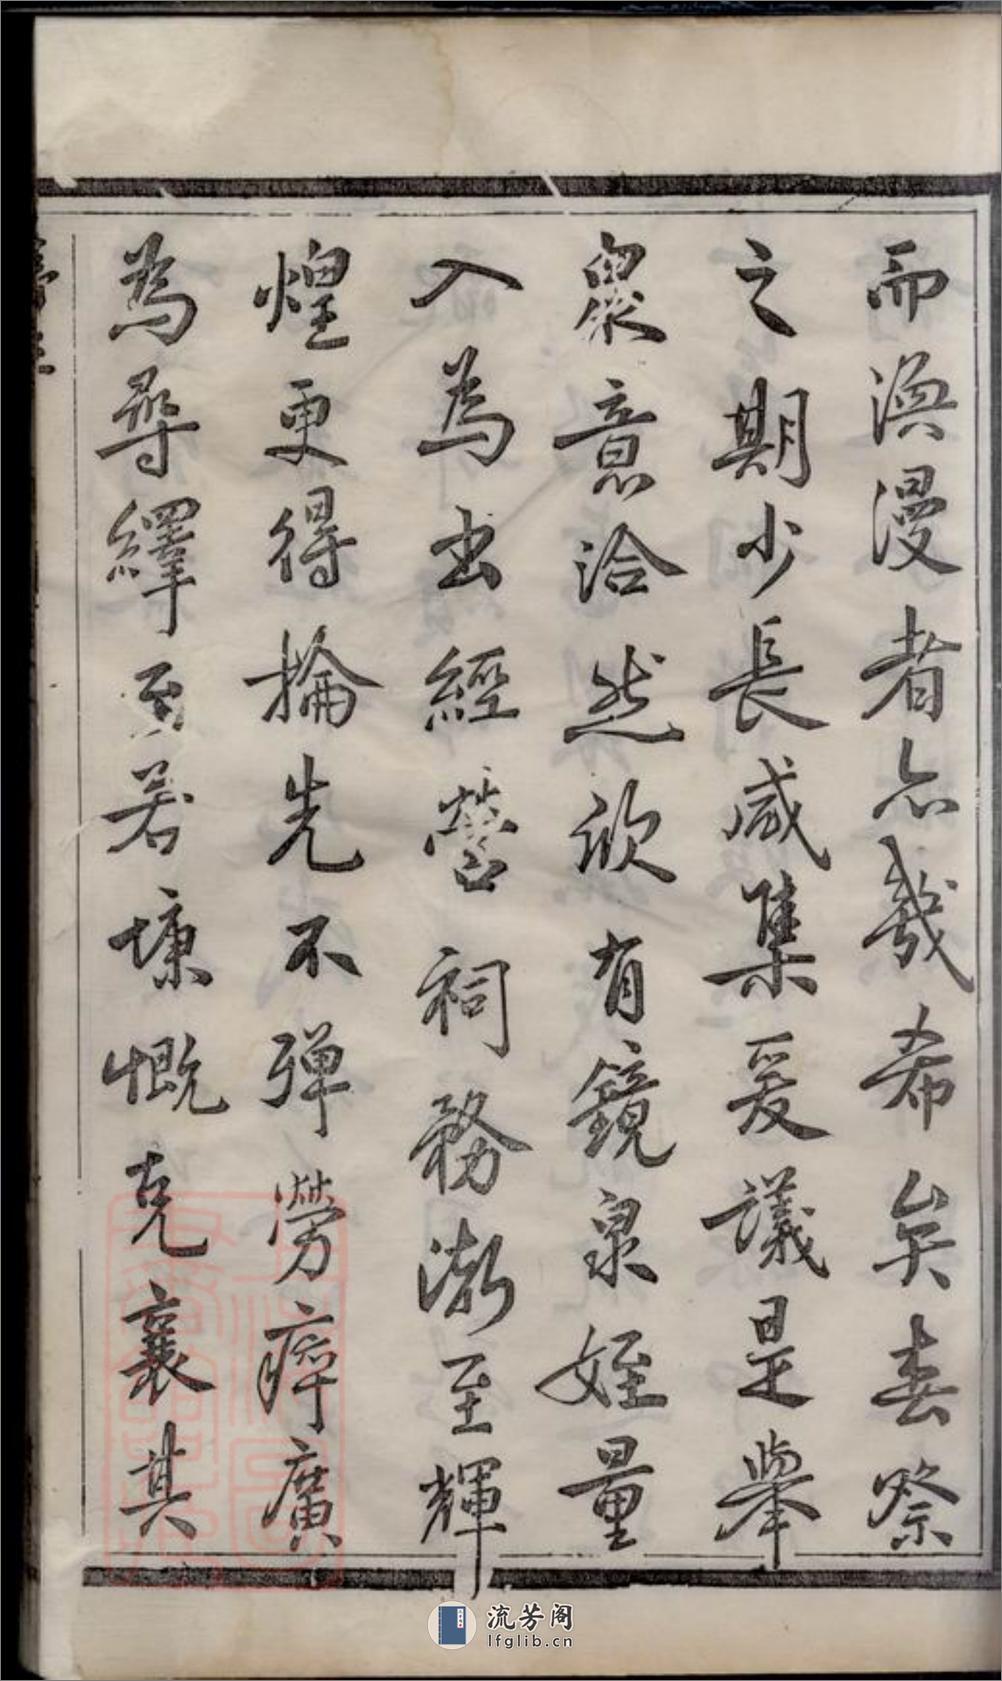 而渙漫者亦幾希矣春祭
之期少長咸集爰議是舉
衆意洽然欣有鏡泉姪量
入為出經營祠務漸至輝
煌更得掄先不彈勞瘁廣
為尋繹至若慷慨克襄其
流芳阁
lfglib.cn